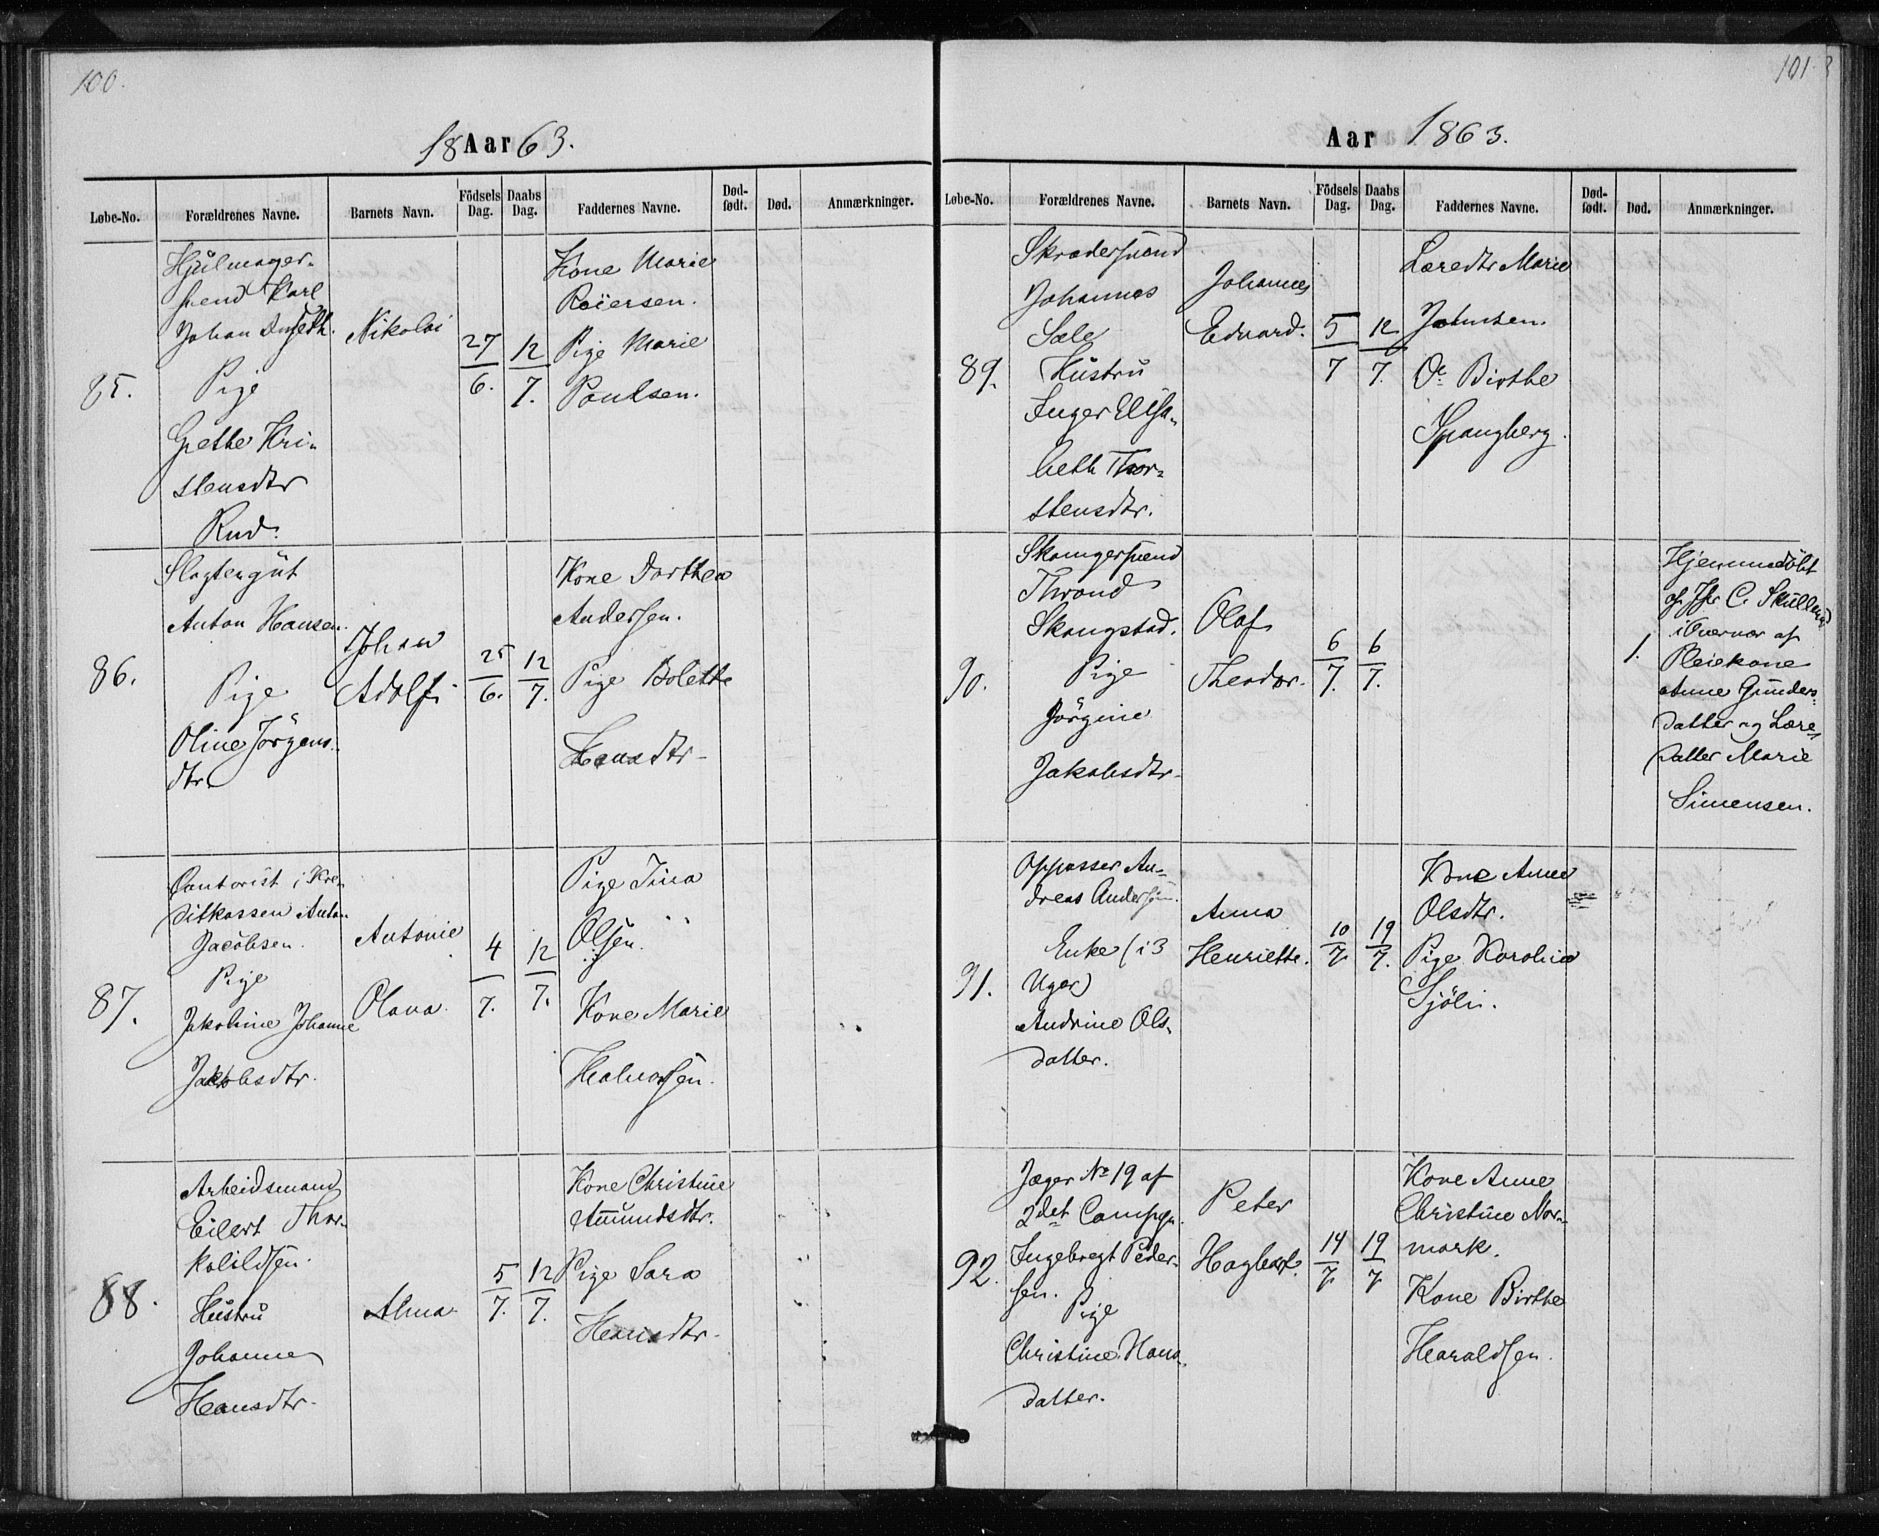 100.
18 Aar 63.
Løbe-No. Forældrenes Navne. Barnets Navn. Födsels Dag. Daabs Dag. Faddernes Navne. Død-født. Død. Anmærkninger.
85.
Hjulmager-
svend Karl
Johan
Pige
Grethe Kri-
stensdtr
Rud.
Nikolai
27/6.
12/7.
Kone Marie
Reiersen.
Pige Marie
Poulsen.
86.
Slagtergut
Anton Hansen.
Pige
Oline Jörgens-
dtr
Johan
Adolf.
25/6.
12/7.
Kone Dorthea
Andersen.
Pige Bolette
Hansdtr
87.
Contorist i Kre-
ditkassen Anton
Jacobsen.
Pige
Jakobine Johanne
Jakobsdtr.
Antonie
Olava.
4/7.
12/7.
Pige Tina
Olsen.
Kone Marie
Halvorsen.
88.
Arbeidsmand
Eilert Thor-
kildsen.
Hustru
Johanne
Hansdtr.
Alma.
5/7.
12/7.
Kone Christine
Amundsdtr.
Pige Sara
Hansdtr.
101
Aar 1863.
Løbe-No. Forældrenes Navne. Barnets Navn. Födsels Dag. Daabs Dag. Faddernes Navne. Død-født. Død. Anmærkninger.
89.
Skrædersvend
Johannes
Sale
Hustru
Inger Elisa-
beth Thor-
stensdtr.
Johannes
Edvard.
5/7
12/7.
Læredtr Marie
Johnsen.
Birthe
Spangberg.
90.
Skomgersvend
Thrond
Skongstad.
Pige
Jörgine
Jakobsdtr.
Olaf
Theodor.
6/7.
6/7.
1.
Hjemmedöbt
af C.
i Overvær af
Pleiekone
Anne Gunders-
datter og Lære-
datter Marie
Simensen.
91.
Oppasser An-
dreas Andersen.
Enke (i 3
Uger)
Andrine Ols-
datter.
Anna
Henriette.
10/7.
19/7.
Kone Anne
Olsdtr.
Pige Karoline
Sjöli.
92.
Jæger No 19 af
2det Compgn.
Ingebregt Peder-
sen.
Pige
Christine Hans-
datter.
Peter
Hagbart.
14/7.
19/7.
Kone Anne
Christine Nor-
mark.
Kone Birthe
Haraldsen.